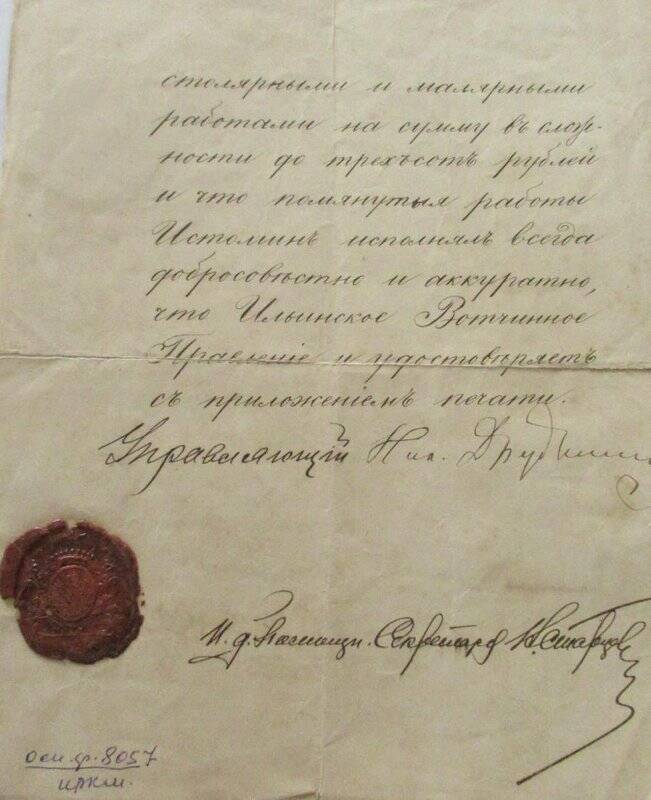 столярными и малярными
работами на сумму въ слож-
ности до трехъсотъ рублей
и что помянутыя работы
Истоминъ исполнялъ всегда
добросовѣстно и аккуратно,
что Ильинское Вотчинное
Правленіе и удостовѣряетъ
съ приложеніемъ печати.
Управляющій Ник.
И. д. Помощн. Секретаря Н. Старцев
осн.ф. 8057
иркм.